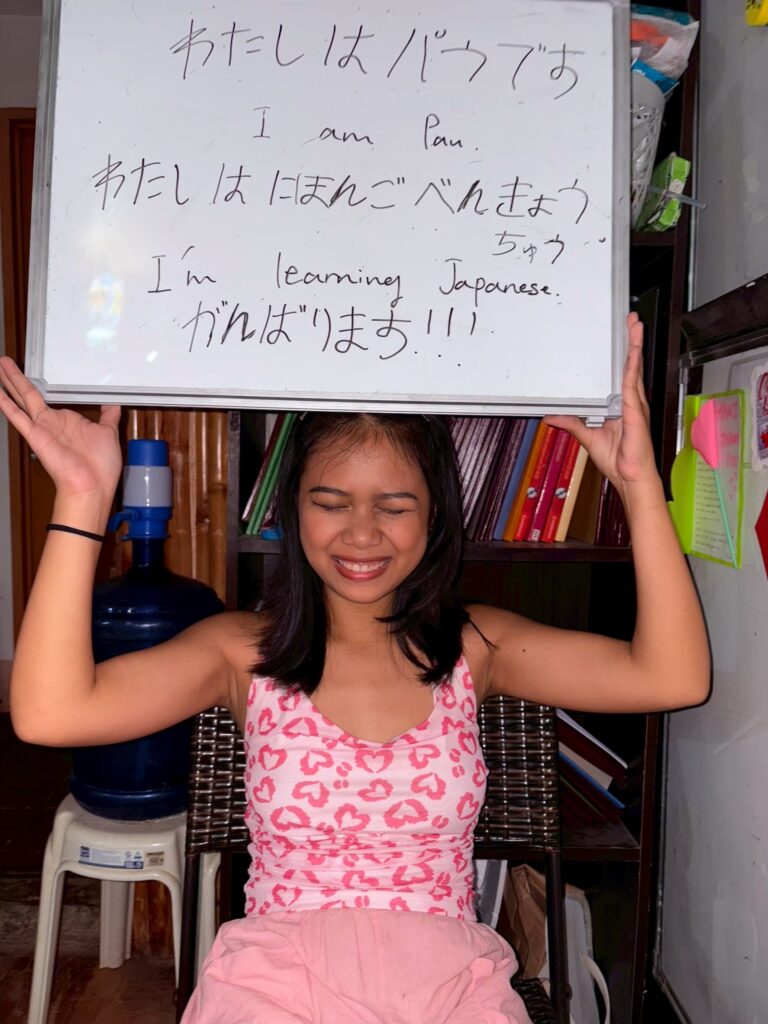 わたしは パウです
I am Pau.
わたしは にほんご べんきょう
ちゅう
I'm learning Japanese.
がんばります!!!